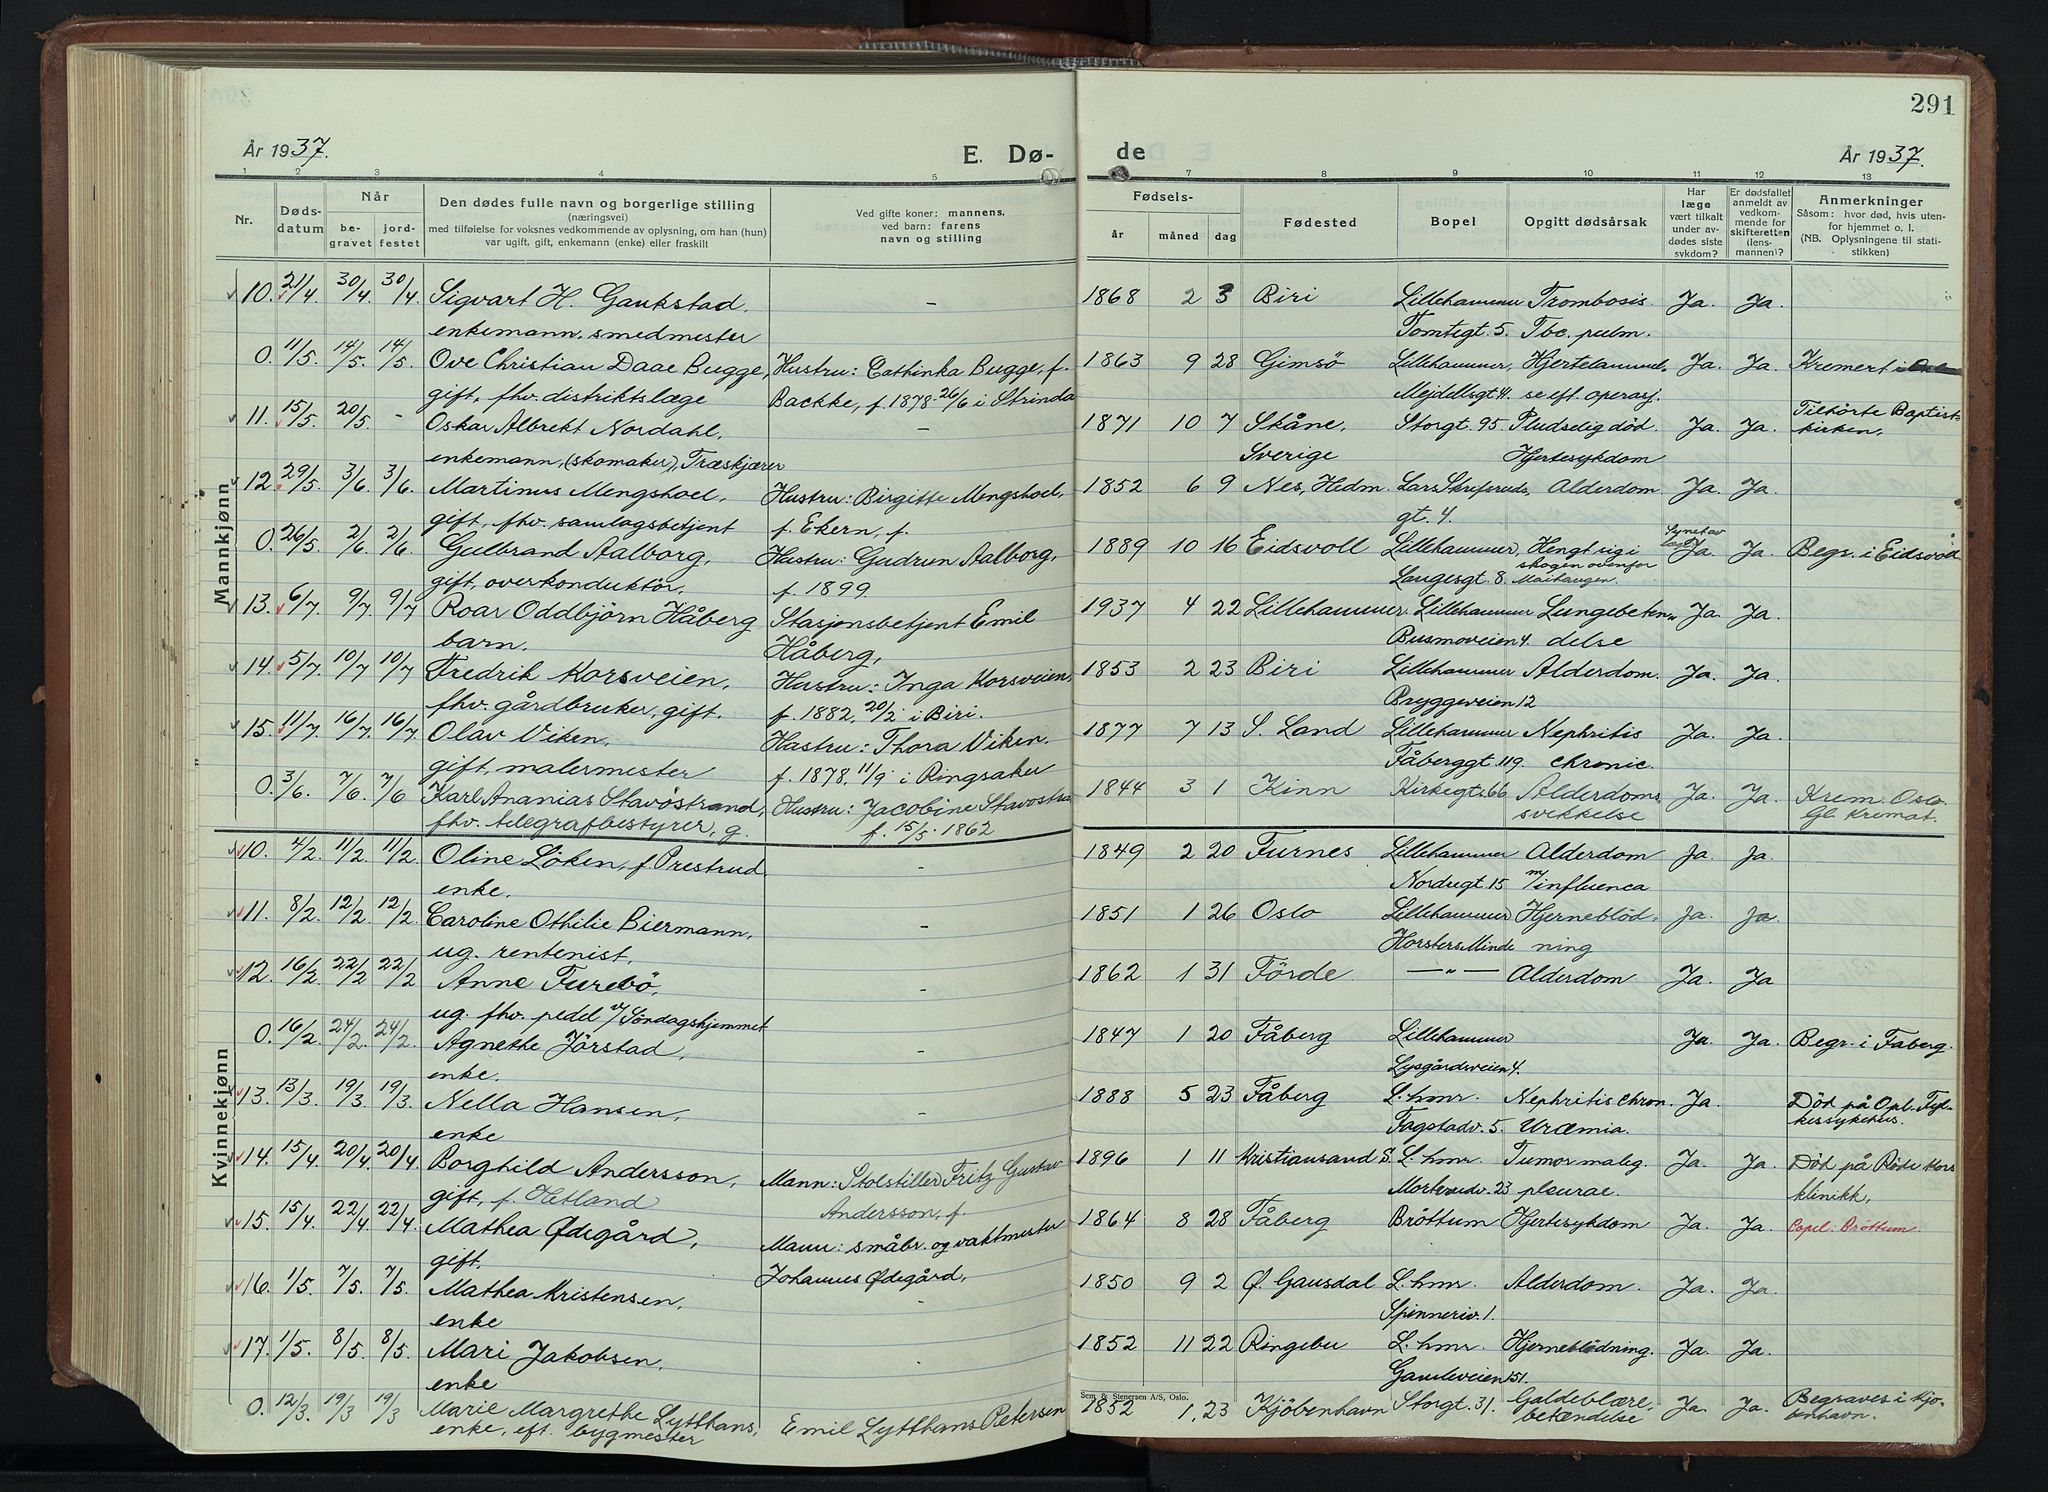 291
År 1937.
E. Dø-
de
År 1937.
1 2 3 4 5 7 8 9 10 11 12 13
Nr.
Dødsdatum
Når
begravet
jordfestet
Den dødes fulle navn og borgerlige stilling
(næringsvei)
med tilføielse for voksnes vedkommende av oplysning, om han (hun)
var ugift, gift, enkemann (enke) eller fraskilt
Ved gifte koner: mannens,
ved barn: farens
navn og stilling
Fødsels-
år måned dag
Fødested
Bopel
Opgitt dødsårsak
Har
læge
vært tilkalt
under av-
dødes siste
sykdom?
Er dødsfallet
anmeldt av
vedkom-
mende for
skifteretten
(lens-
mannen)?
Anmerkninger
Såsom: hvor død, hvis uten-
for hjemmet o. l.
(NB. Oplysningene til stati-
stikken)
Mannkjønn
10. 21/4 30/4 30/4 Sigvart H. Gaukstad, - 1868 2 3 Biri Lillehammer Trombosis. Ja. Ja.
enkemann, smedmester Tomtegt. 5. Tbc. pulm.
0. 11/5 14/5 14/5 Ove Christian Daae Bugge, Hustru: Cathinka Bugge, f. 1863 9 28 Gimsö Lillehammer, Hjertelammelse Ja. Ja. Kremert i
gift, fhv. distriktslæge Backke, f. 1878 26/6 i Strinda Mejdellsgt. 4. se eft. operasj.
11. 15/5 20/5 - Oskar Albrekt Nordahl, - 1871 10 7 Skåne, Storgt. 95. Pludselig död. Ja. Ja. Tilhörte Baptist-
kirken.
enkemann, (skomaker), Træskjærer Sverige Hjertesykdom
12. 29/5 3/6 3/6 Martinus Mengshoel, Hustru: Birgitte Mengshoel, 1852 6 9 Nes, Hedm. Lars Skrefsruds, Alderdom Ja. Ja.
gift, fhv. samlagsbetjent f. Ekern, f. gt. 4.
0. 26/5 2/6 2/6 Gulbrand Aalborg, Hustru: Gudrun Aalborg, 1889 10 16 Eidsvoll Lillehammer, Hengt sig i Ja. Ja. Begr. i Eidsvoll
skogen ovenfor
gift, overkonduktör. f. 1899. Langesgt. 8. Maihaugen.
13. 6/7 9/7 9/7 Roar Oddbjörn Håberg Stasjonsbetjent Emil 1937 4 22 Lillehammer. Lillehammer Lungebeten- Ja. Ja.
barn. Håberg, Busmoveien 4. delse
14. 5/7 10/7 10/7 Fredrik Korsveien, Hustru: Inga Korsveien, 1853 2 23 Biri Lillehammer Alderdom. Ja. Ja.
fhv. gårdbruker, gift. f. 1882, 20/2 i Biri. Bryggeveien 12
15. 11/7 16/7 16/7 Olav Viken, Hustru: Thora Viken. 1877 7 13 S. Land Lillehammer Nephritis Ja. Ja.
gift, malermester f. 1878, 11/9 i Ringsaker Fåberggt. 119. chronic.
0. 3/6 7/6 7/6 Karl Ananias Stavöstrand, Hustru: Jacobine Stavöstra 1844 3 1 Kinn Kirkegt. 66 Alderdoms, Ja. Ja. Krem. Oslo
fhv. telegrafbestyrer, g. f. 15/5 1862 svekkelse Gl. Kremat.
Kvinnekjønn
10. 4/2. 11/2 11/2 Oline Löken, f. Prestrud - 1849 2 20 Furnes Lillehammer Alderdom Ja. Ja.
enke. Nordregt. 15 m/influenca
11. 8/2 12/2 12/2 Caroline Othilie Biermann, - 1851 1 26 Oslo Lillehammer Hjerneblöd- Ja. Ja.
ug. rentenist. Horsters Minde ning
12. 16/2 22/2 22/2 Anne Furebö, - 1862 1 31 Förde -"- Alderdom Ja. Ja
ug. fhv. pedel v/ Söndagshjemmet
0. 16/2 24/2 24/2 Agnethe Jörstad, - 1847 1 20 Fåberg Lillehammer Ja. Ja. Begr. i Faberg.
enke. Lysgårdsveien 4.
13. 13/3 19/3 19/3 Nella Hansen, - 1888 5 23 Fåberg L.hmr. Nephritis chron. Ja. Död på Opl. Fyl-
enke Fagstadv. 5. Uræmia. kessykehus.
14. 15/4 20/4 20/4 Borghild Andersson, Mann: Stolstiller Fritz Gustav 1896 1 11 Kristiansand S. L.hmr. Tumor malig. Ja. Ja. Död på Röde Kors
gift, f. Hetland Andersson, f. 23 pleurae. klinikk.
15. 15/4 22/4 22/4 Mathea Ødegård, Mann: småbr. og vaktmester 1864 8 28 Fåberg Bröttum Hjertesykdom Ja. Ja. Bröttum.
gift. Johannes Ødegård.
16. 1/5 7/5 7/5 Mathea Kristensen, - 1850 9 2 Ø. Gausdal L.hmr. Alderdom. Ja. Ja.
enke Spinneriv. 1.
17. 1/5. 8/5 8/5 Mari Jakobsen, 1852 11 22 Ringebu L.hmr. Hjerneblödning. Ja. Ja.
enke Gamleveien 151.
Sem & Stenersen A/S, Oslo.
0. 12/3. 19/3 19/3 Marie Margrethe Lytthans, Emil Lytthans Petersen 1852 1. 23 Kjöbenhavn Storgt. 31. Galdeblære, Ja. Ja. Begraves i Kjö-
enke, eft. bygmester betændelse benhavn.